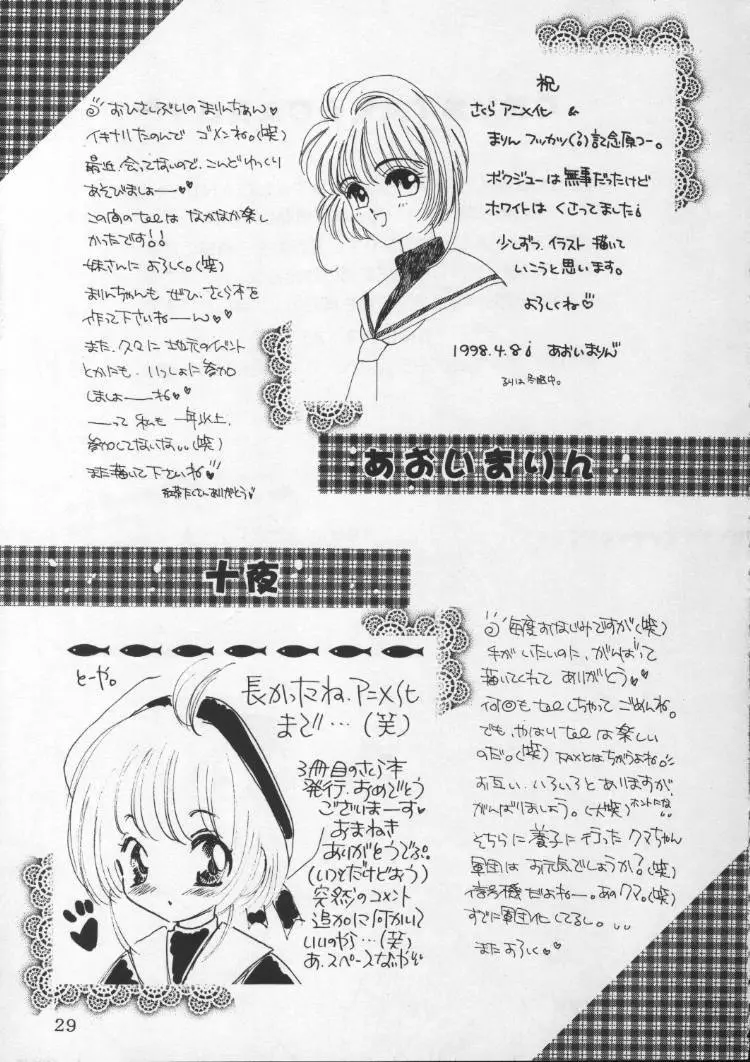 おひさしぶりの まりんちゃん♥
イキナリたのんで ゴメンね。(笑)
最近、会ってないので、こんどゆっくり
あそびましょー♥♥
この間のtelは なかなか楽し
かったです!!
妹さんに よろしく。(笑)
まりんちゃんも ぜひ、さくら本を
作って下さいねーん♥♥
また、久々に 地元のイベント
とかにも、いっしょに参加
しましょーね♥♥
ーって 私も 一年以上
参加してないな、、(笑)
また描いて下さいね♡♡
たくさんありがとう♥
祝
さくら アニメ化 &
まりん フッカツ(る)記念原コー。
ボクジューは無事だったけど
ホワイトは くさってました¡
少しずつ、イラスト 描いて
いこうと思います。
よろしくね♡
1998.4.8¡ あおいまりん
あおいまりん
十夜
とーや。
長かったね、アニメ化
まで…(笑)
3冊目のさくら本
発行、おめでとう
ございまーす♥
おまねき
ありがとうでぷ。
(いつもだけどおう)
突然のコメント
追加に何かいて
いいのやら…(笑)
あ、スペースなかや
毎度おなじみですが(笑)
手がいたいのに、がんばって
描いてくれて ありがとう♥
何回もtelしちゃって ごめんね。
でも、やはりtelは楽しい
のだ。(笑) FAXとはちがうよね♪
お互い、いろいろとありますが
がんばりましょう。(大笑) ホントにな!!
そちらに養子に行った クマちゃん
軍団は お元気でしょうか?(笑)
信号機だよねー。あのクマ。(笑)
すでに軍団化してるし。、、
また よろしく♥♥
29